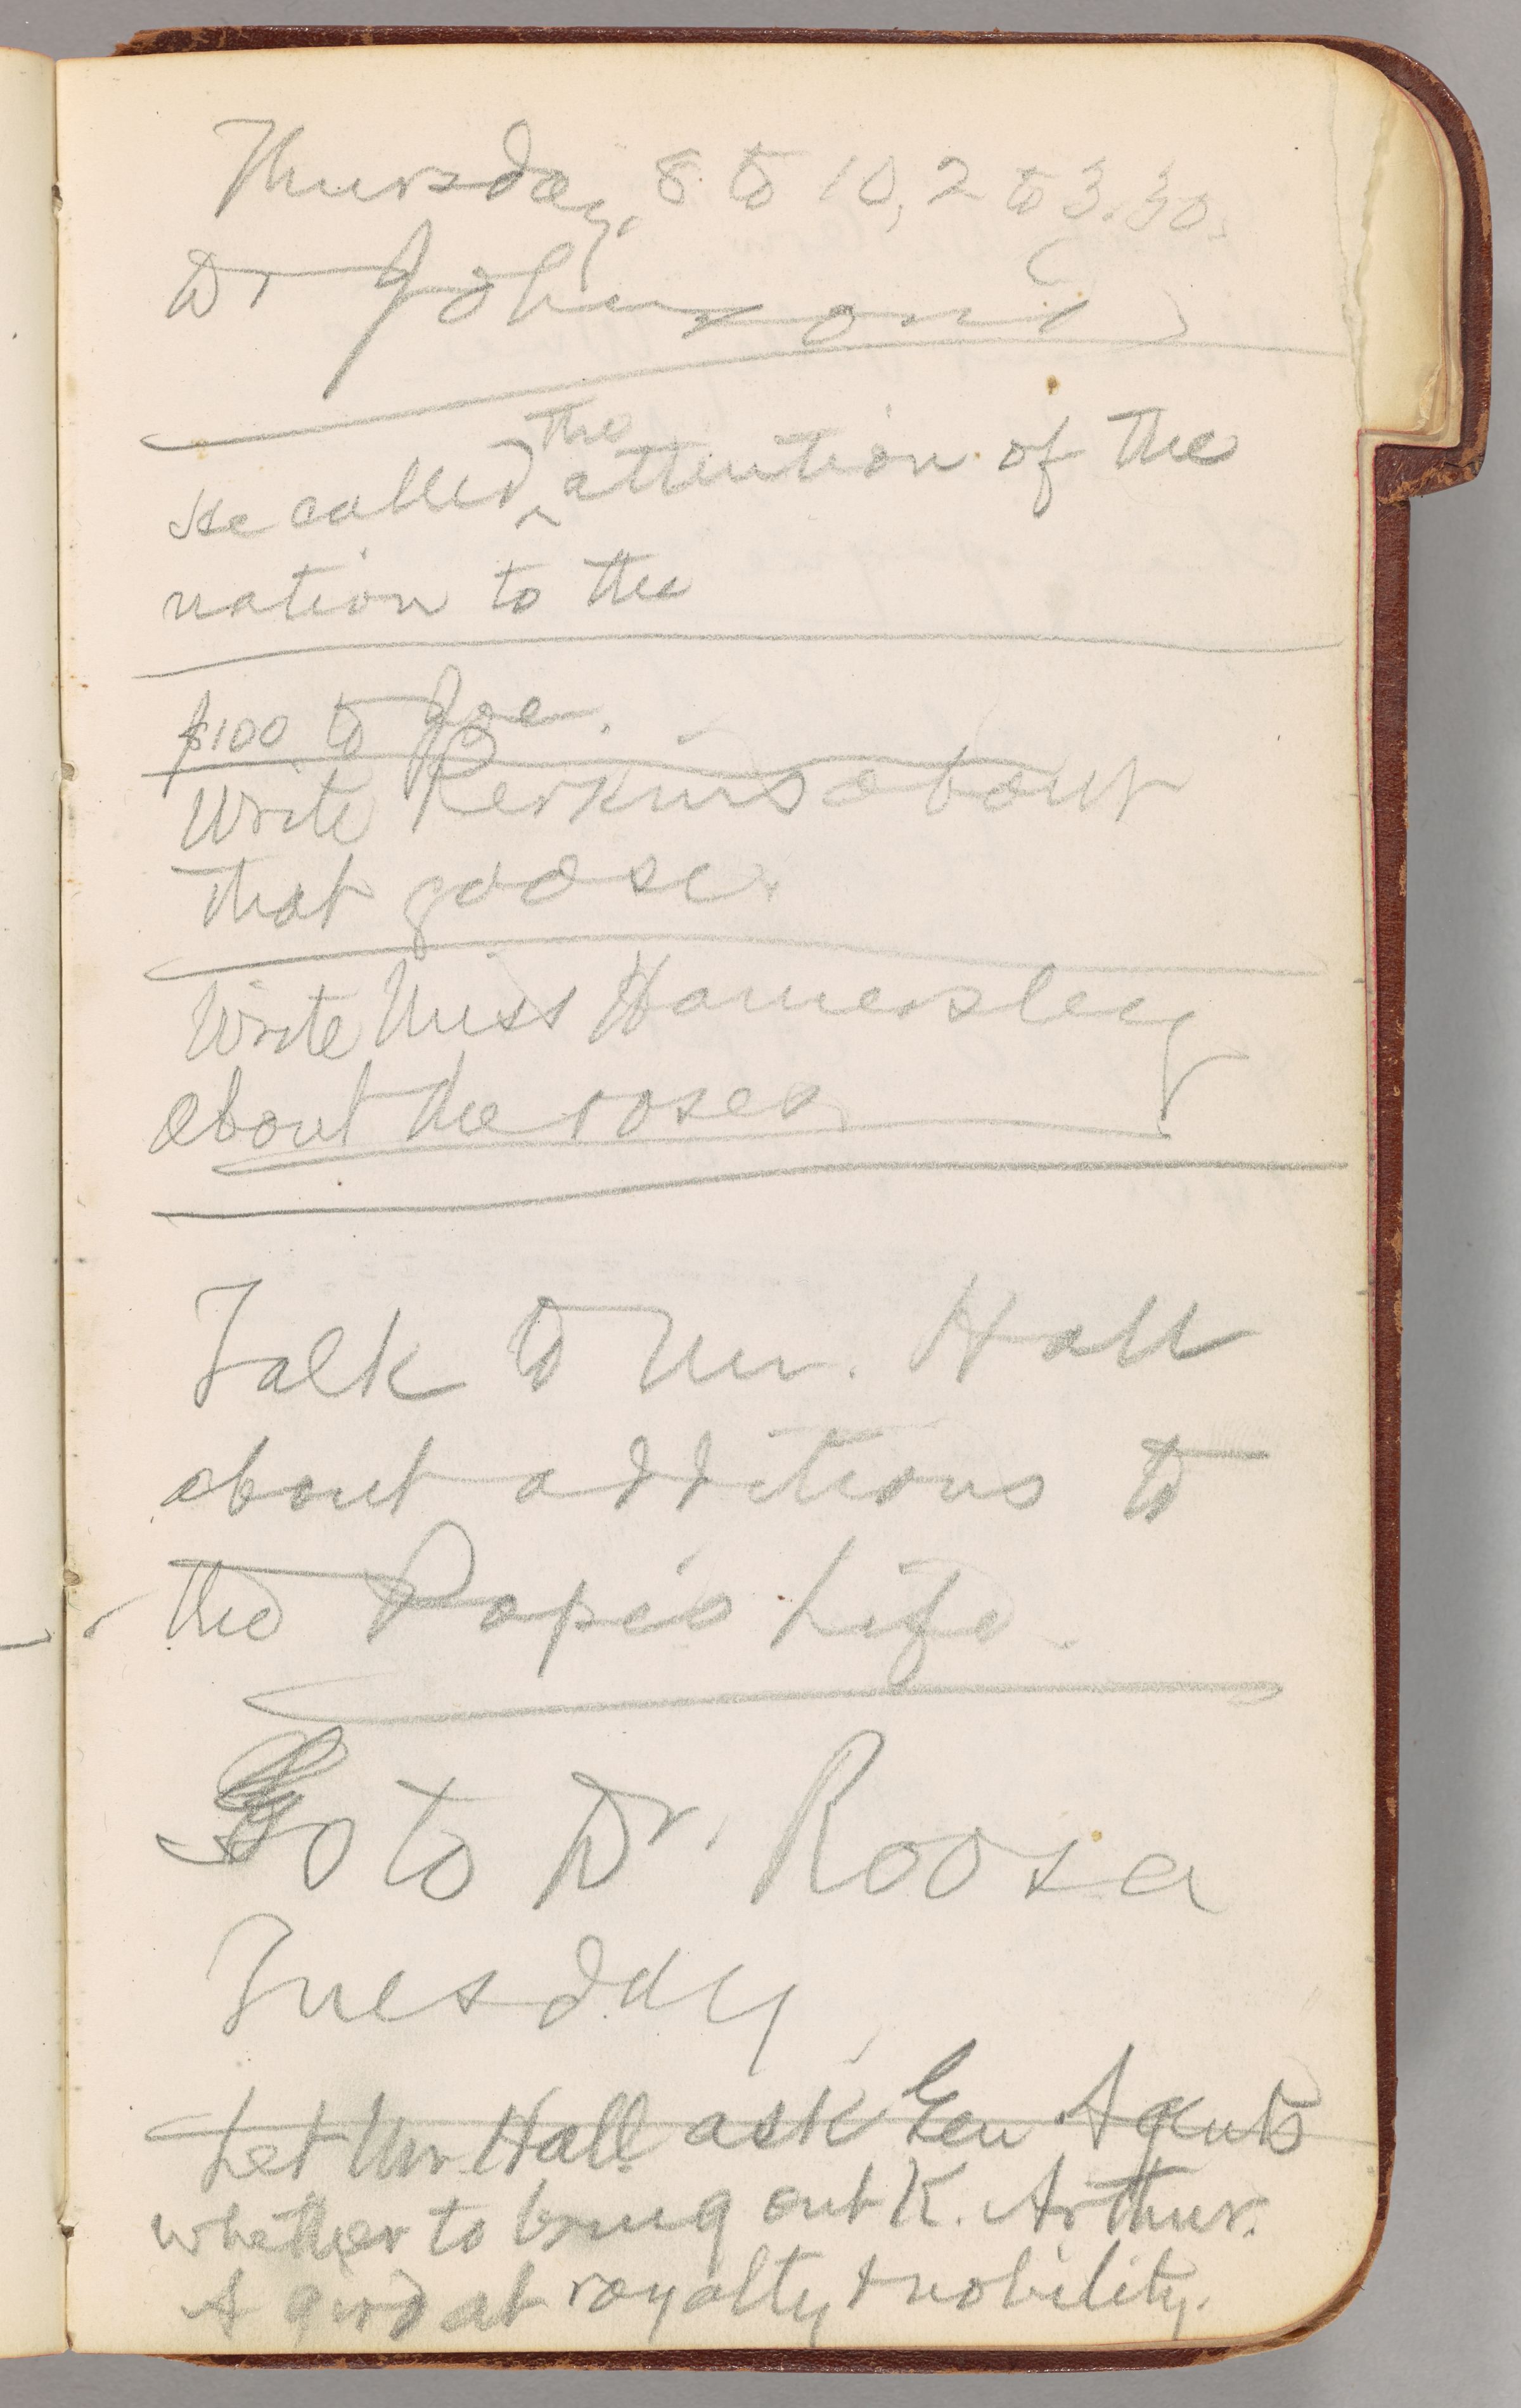 Thursday, 8 to 10, 2 to 3.30.
Dr Johnson
He called the attention of the
nation to the
$100 to Joe.
Write Perkins about
that goose.
Write Miss Hamersley
about the roses
Talk to Mr. Hall
about additions to
the Pope's Life.
Go to Dr. Roosa
Tuesday
Let Mr. Hall ask Gen Agents
whether to bring out K. Arthur.
A gird at royalty & nobility.